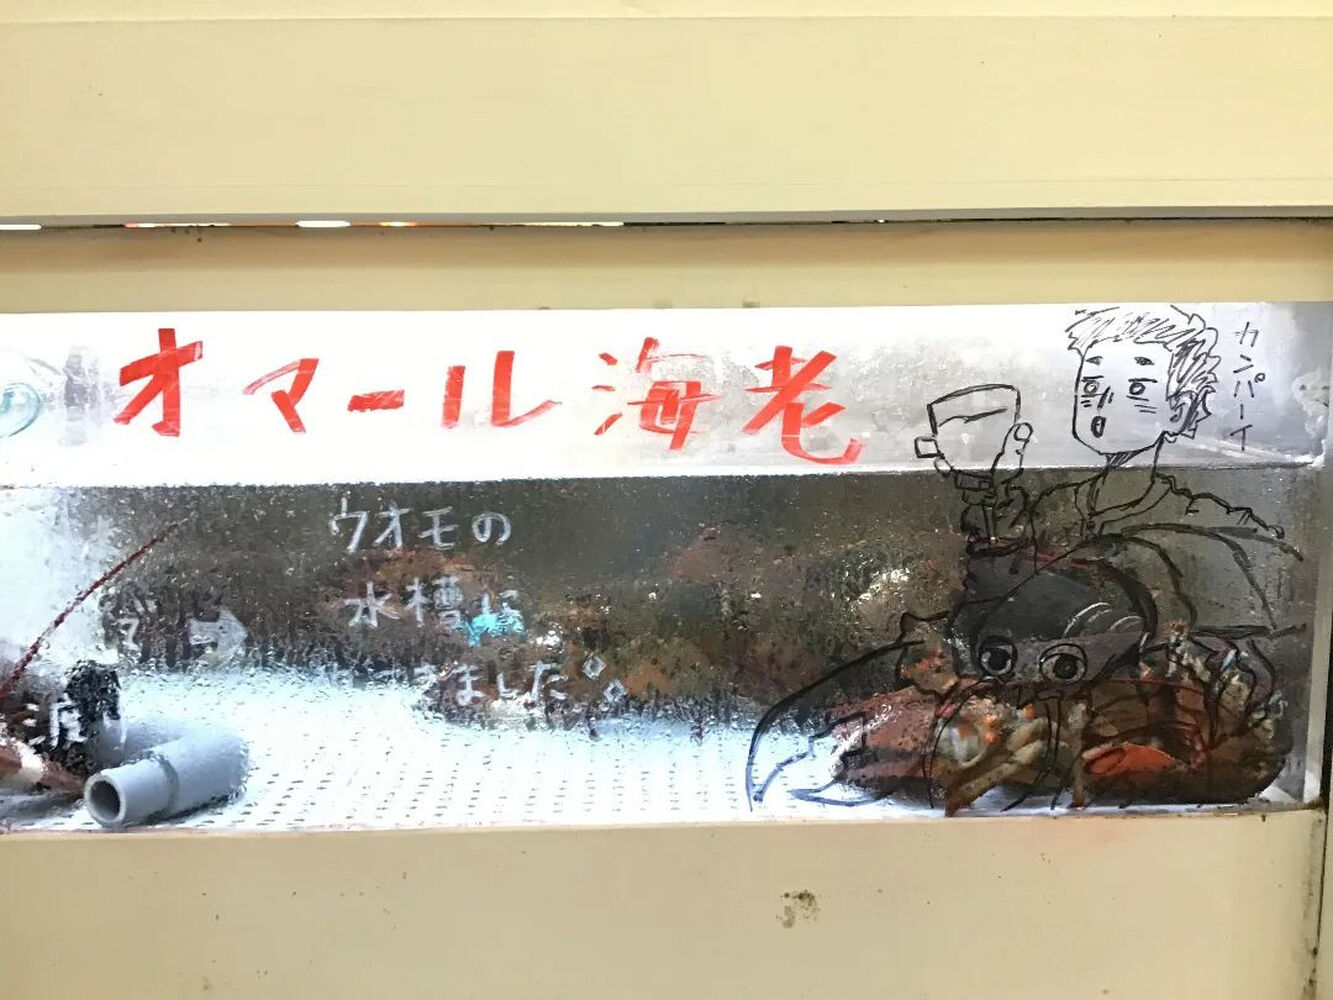 の オマール海老
カンパーイ
ウオモの
水槽に
きました。
渡り